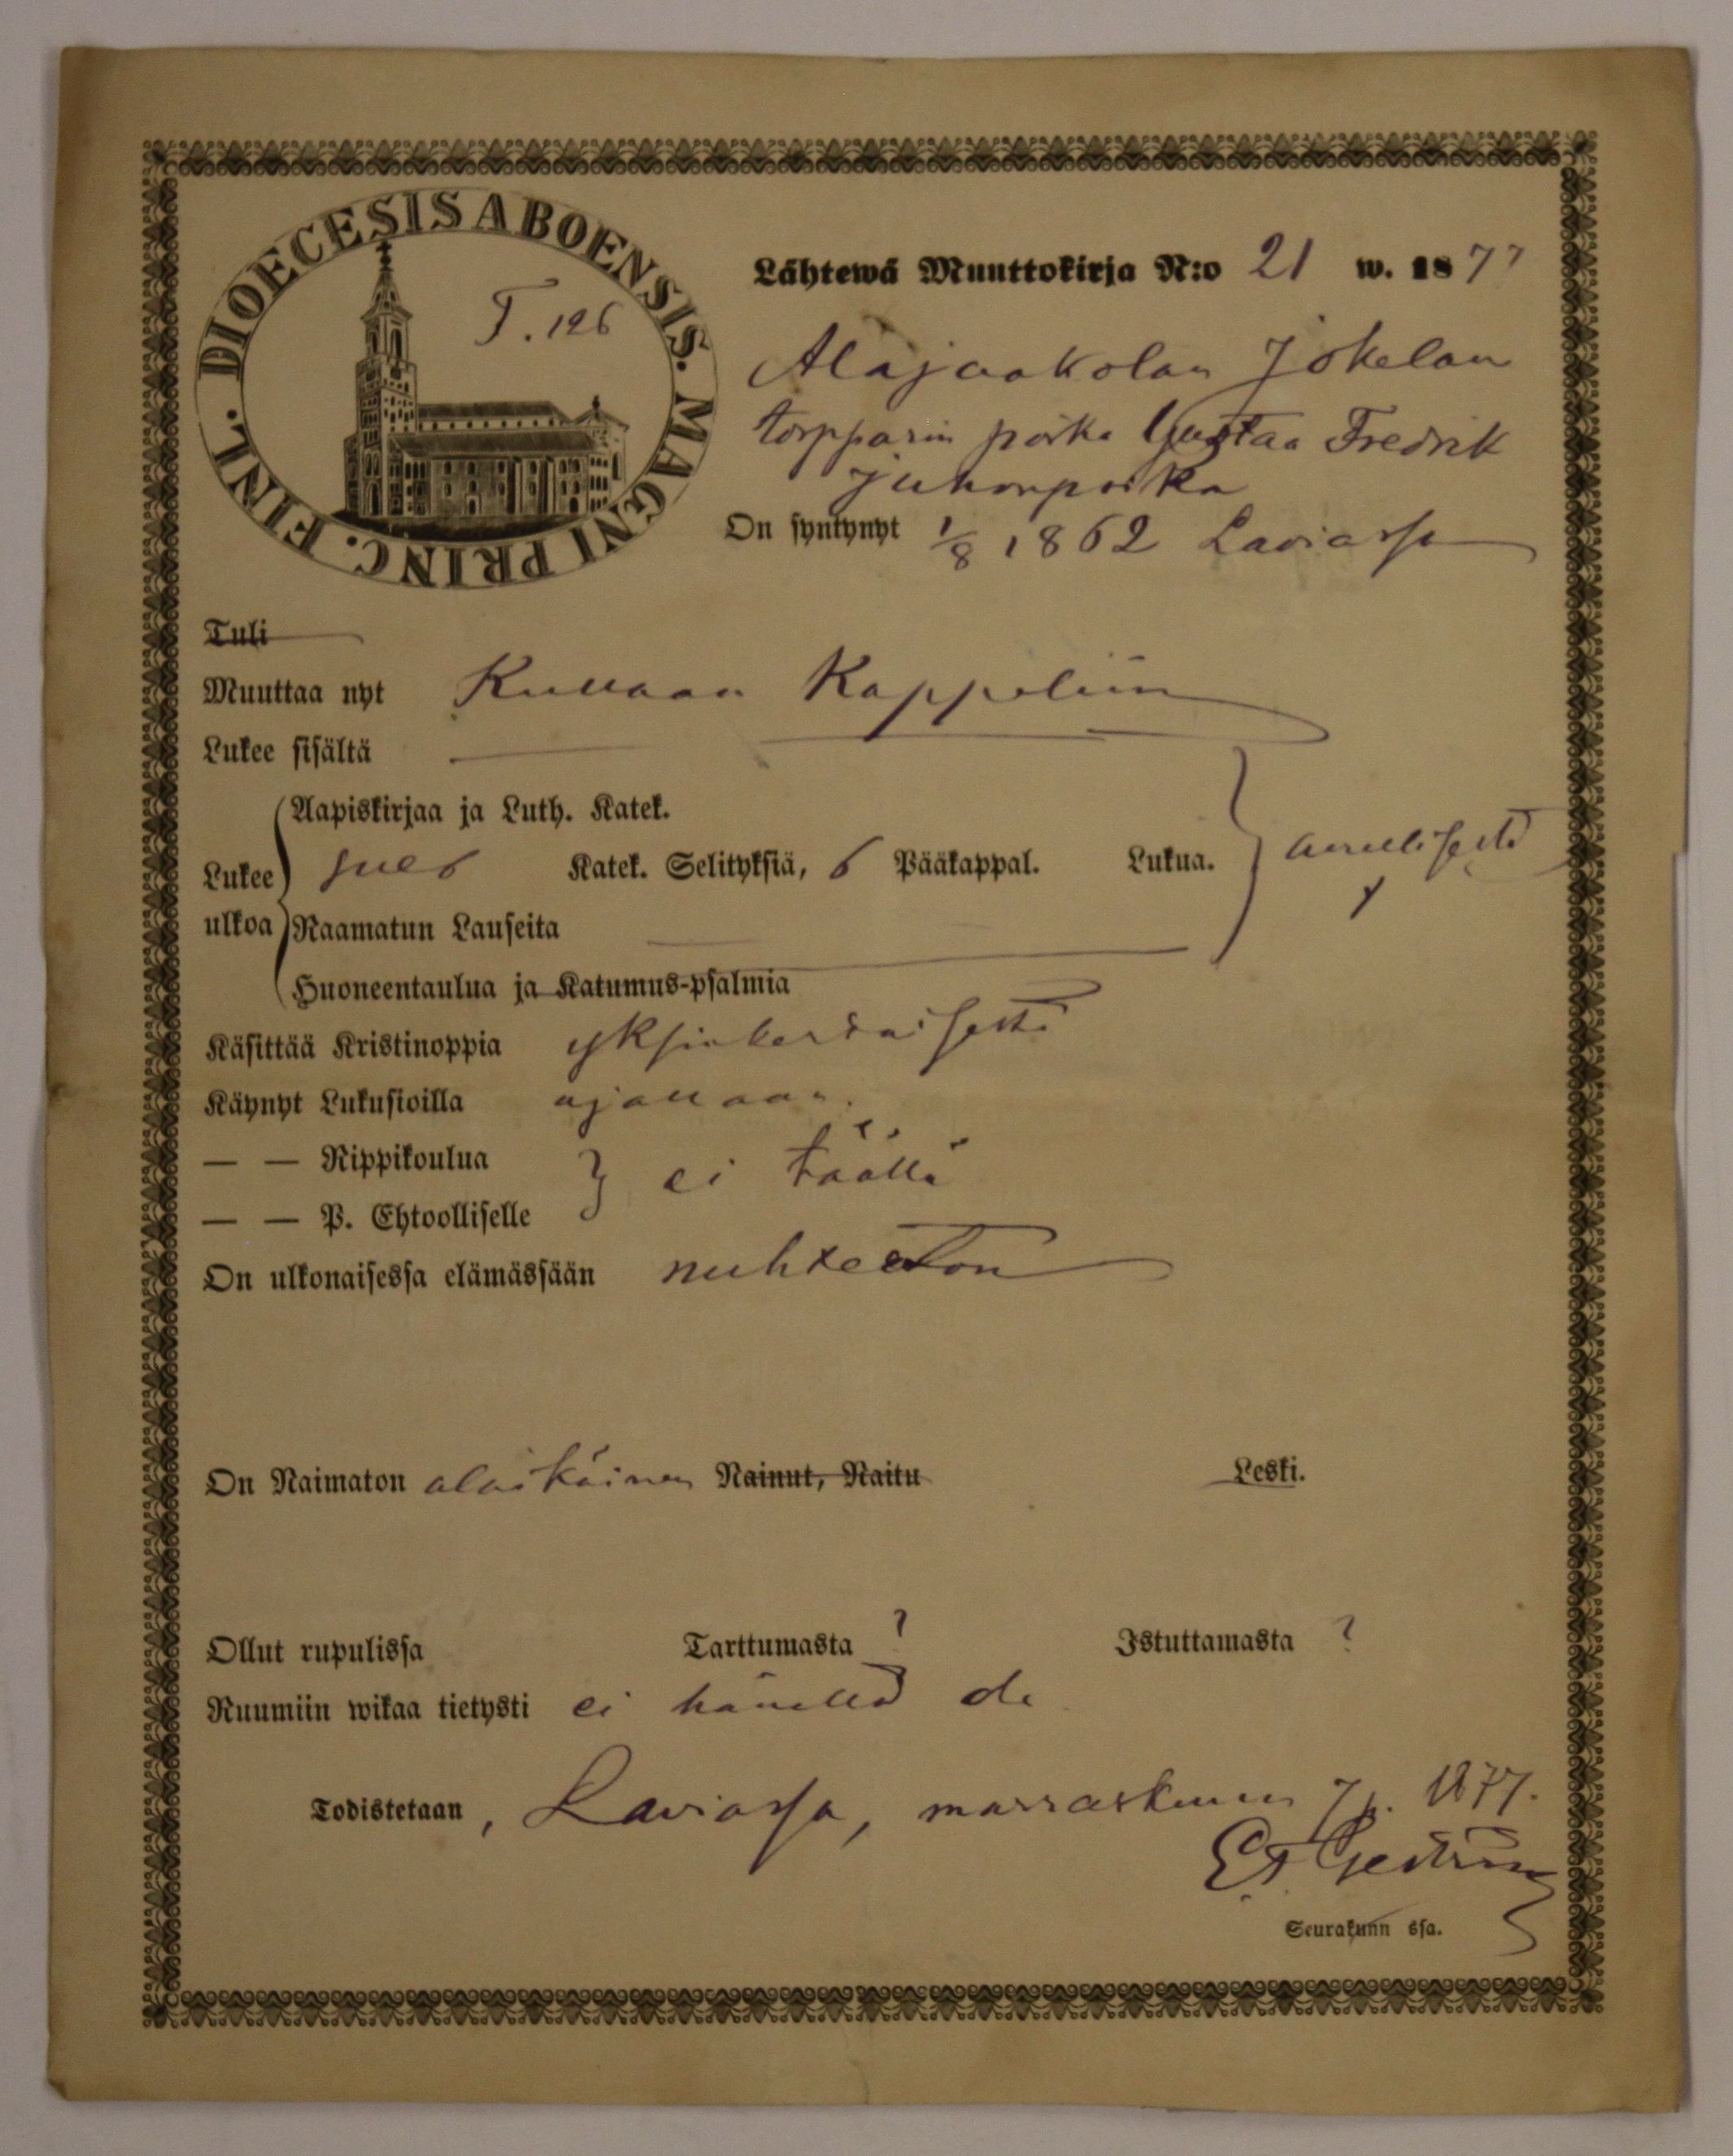 DIOECESIS ABOENSIS. MAGNI PRINC. FINL.
T. 126
Lähtewä Muuttokirja N:o 21 w. 1877
Alajaakolan Jokelan
torpparin poika Gustaa Fredrik
Juhonpoika
On syntynyt 1/8 1862 Laviassa
Tuli
Muuttaa nyt Kullaan Kappeliin
Lukee sisältä
Aapiskirjaa ja Luth. Katek.
Lukee Katek. Selityksiä, 6 Pääkappal. Lukua.
ulkoa Raamatun Lauseita
Huoneentaulua ja Katumus-psalmia
Käsittää Kristinoppia yksinkertaisesti
Käynyt Lukusioilla ajallaan.
— — Rippikoulua } ei täällä
— — P. Ehtoolliselle
On ulkonaisessa elämässään nuhteeton
On Naimaton alaikäinen Nainut, Naitu Leski.
Ollut rupulissa Tarttumasta ? Istuttamasta ?
Ruumiin wikaa tietysti ei hänellä ole
Todistetaan, Laviassa, marraskuun 7 p. 1877.
Seurakunn ssa.